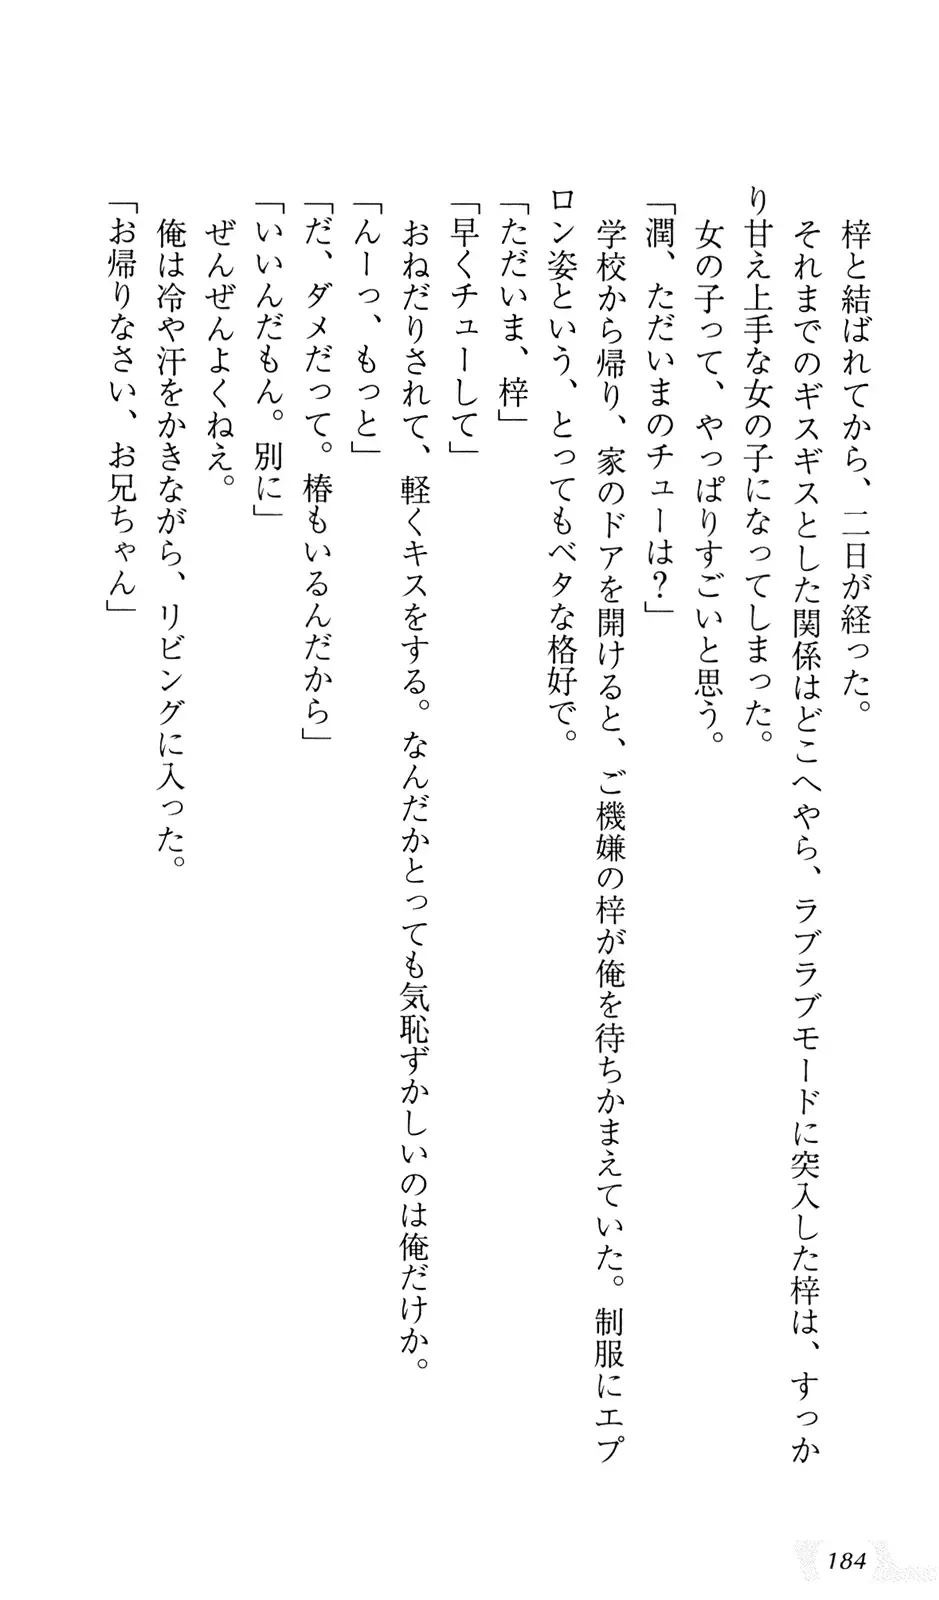 梓と結ばれてから、二日が経った。
それまでのギスギスとした関係はどこへやら、ラブラブモードに突入した梓は、すっか
り甘え上手な女の子になってしまった。
女の子って、やっぱりすごいと思う。
「潤、ただいまのチューは？」
学校から帰り、家のドアを開けると、ご機嫌の梓が俺を待ちかまえていた。制服にエプ
ロン姿という、とってもベタな格好で。
「ただいま、梓」
「早くチューして」
おねだりされて、軽くキスをする。なんだかとっても気恥ずかしいのは俺だけか。
「んーっ、もっと」
「だ、ダメだって。椿もいるんだから」
「いいんだもん。別に」
ぜんぜんよくねえ。
俺は冷や汗をかきながら、リビングに入った。
「お帰りなさい、お兄ちゃん」
184